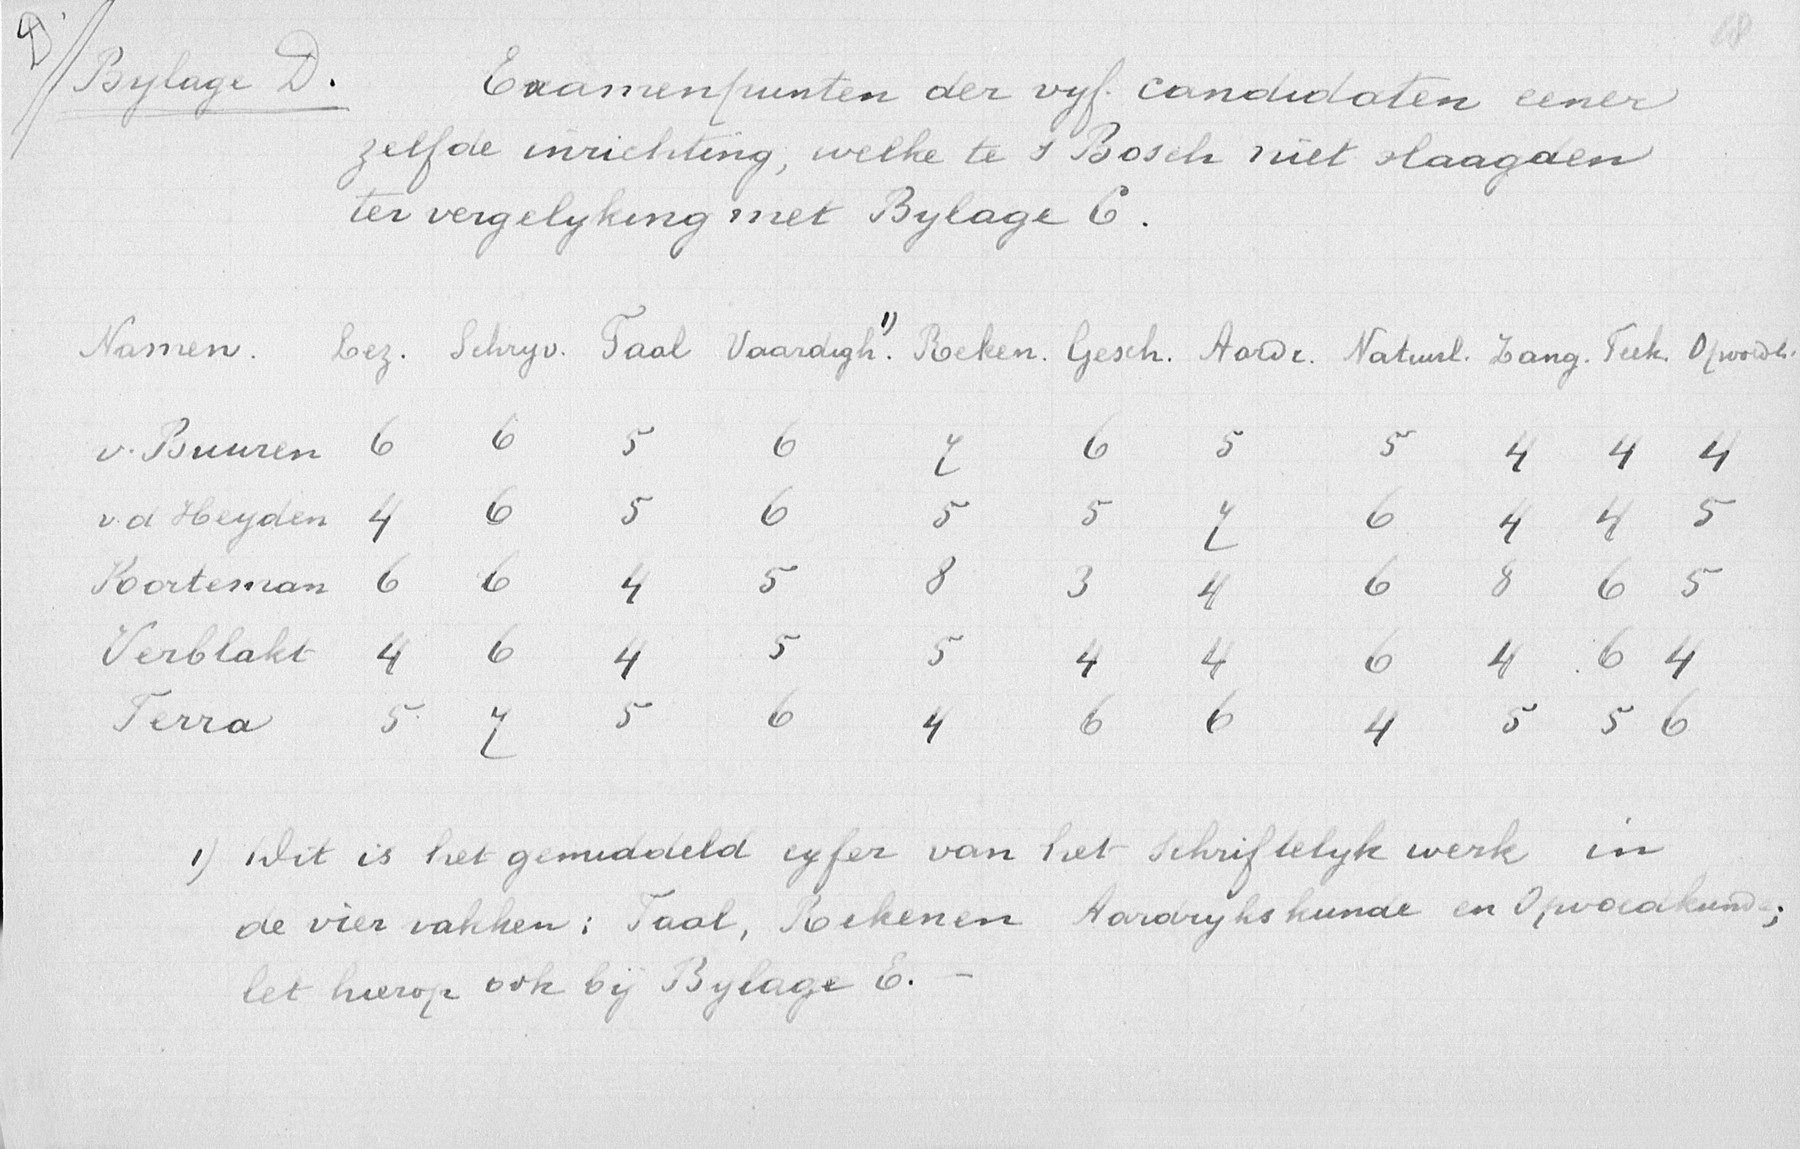 D
18
Bylage D. Examenpunten der vyf candidaten eener
zelfde inrichting, welke te s Bosch niet slaagden
ter vergelyking met Bylage C.
Namen. Lez. Schryv. Taal Vaardigh. 1) Reken. Gesch. Aardr. Natuurl. Zang. Teek. Opvoedk.
v. Buuren 6 6 5 6 7 6 5 5 4 4 4
v d Heyden 4 6 5 6 5 5 7 6 4 4 5
Koorteman 6 6 4 5 8 3 4 6 8 6 5
Verblakt 4 6 4 5 5 4 4 6 4 6 4
Terra 5 7 5 6 4 6 6 4 5 5 6
1) Dit is het gemiddeld cyfer van het schriftelyk werk in
de vier vakken: Taal, Rekenen Aardrykskunde en Opvoedkunde;
let hierop ook bij Bylage E. –